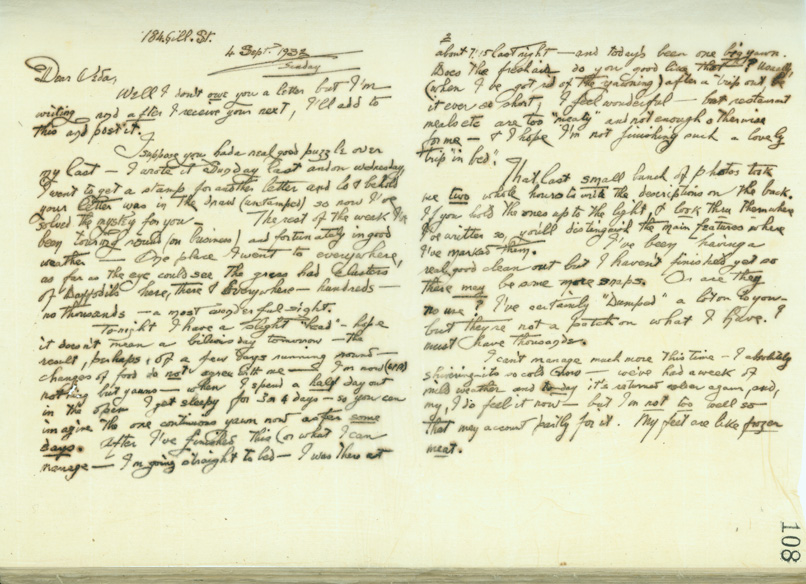 184 Gill. St.
4 Sept. 1932
Sunday
Dear Ada,
Well I don't owe you a letter but I'm
writing and after I receive your next, I'll add to
this and post it.
I suppose you had a real good puzzle over
my last — I wrote it Sunday last and on Wednesday
I went to get a stamp for another letter and lo & behold
your letter was in the draw (unstamped) so now I've
solved the mystery for you — The rest of the week I've
been touring round (on business) and fortunately in good
weather — One place I went to everywhere,
as far as the eye could see the grass had clusters
of Daffodils here, there & Everywhere — hundreds —
no thousands — a most wonderful sight.
Tonight I have a slight "head" — hope
it doesn't mean a bilious day tomorrow — the
result, perhaps, of a few days running round —
changes of food do not agree with me — I'm now
nothing but yawns — when I spend a half day out
in the open I get sleepy for 3 or 4 days — so you can
imagine the one continuous yawn now after some
days. After I've finished this (or what I can
manage — I'm going straight to bed — I was there at
2
about 7.15 last night — and today's been one big yawn.
Does the fresh air do you good like that? Usually,
(when I've got rid of the yawning) after a trip out be
it ever so short, I feel wonderful — but restaurant
meals etc are too "meaty" and not enough otherwise
for me — & I hope I'm not finishing such a lovely
trip "in bed".
That last small bunch of photos took
me two whole hours to with the descriptions on the back.
If you hold the ones up to the light & look thru them where
I've written so, you'll distinguish the main features where
I've marked them. I've been having a
real good clean out but I haven't finished yet so
there may be some more snaps. Or are they
no use? I've certainly "Dumped" a lot on to you —
but they're not a patch on what I have. I
must have thousands.
I can't manage much more this time — I'm absolutely
shivering its so cold — we've had a week of
mild weather and today it's returned again, and,
my, I do feel it now — but I'm not too well so
that may account partly for it. My feet are like frozen
meat.
108